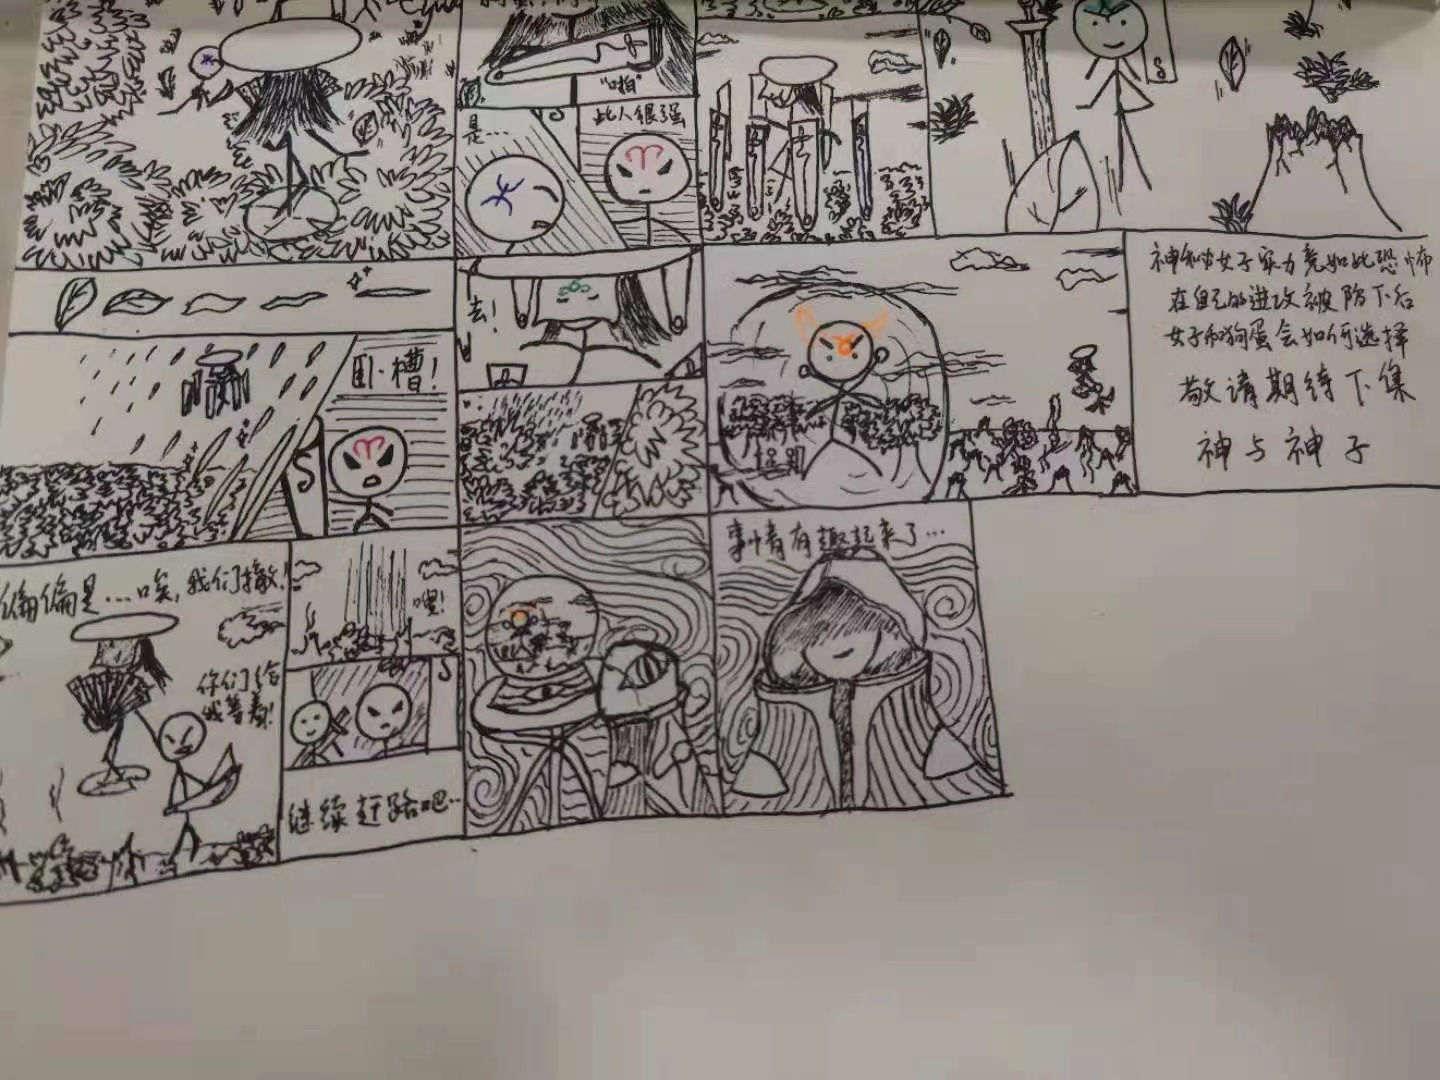 "啪"
是…
此人很强
去!
卧槽!
神秘女子实力竟如此恐怖
在自己的进攻被防下后
女子和狗蛋会如何选择
敬请期待下集
神与神子
偏偏是…唉,我们撤!
你们给
我等着!
嘿!
继续赶路吧…
事情有趣起来了…